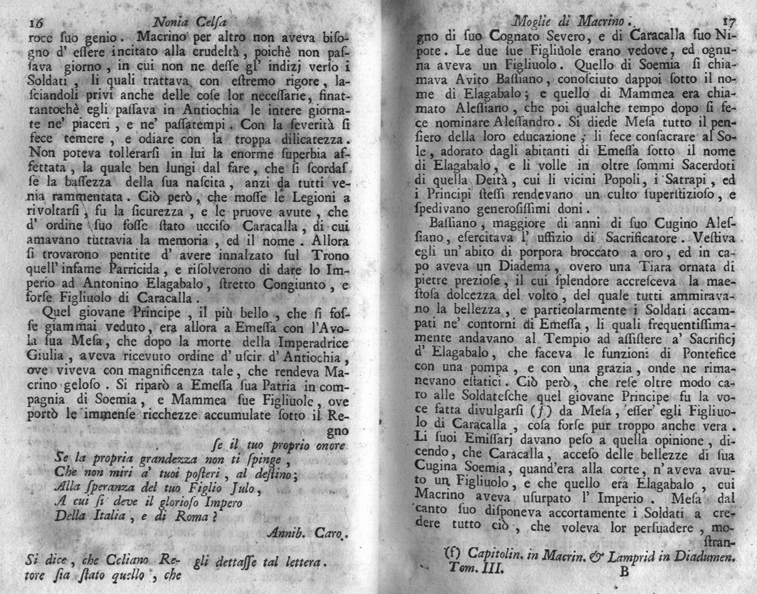 16 Nonia Celſa
roce ſuo genio. Macrino per altro non aveva biſo-
gno d' eſſere incitato alla crudeltà, poichè non paſ-
ſava giorno, in cui non ne deſſe gl' indizj verſo i
Soldati, li quali trattava con eſtremo rigore, la-
ſciandoli privi anche delle coſe lor neceſſarie, finat-
tantochè egli paſſava in Antiochia le intere giorna-
te ne' piaceri, e ne' paſſatempi. Con la ſeverità ſi
fece temere, e odiare con la troppa dilicatezza.
Non poteva tollerarſi in lui la enorme ſuperbia af-
fettata, la quale ben lungi dal fare, che ſi ſcordaſ
ſe la baſſezza della ſua naſcita, anzi da tutti ve-
nia rammentata. Ciò però, che moſſe le Legioni a
rivoltarſi, fu la ſicurezza, e le pruove avute, che
d' ordine ſuo foſſe ſtato ucciſo Caracalla, di cui
amavano tuttavia la memoria, ed il nome. Allora
ſi trovarono pentite d' avere innalzato ſul Trono
quell'infame Parricida, e riſolverono di dare lo Im-
perio ad Antonino Elagabalo, ſtretto Congiunto, e
forſe Figliuolo di Caracalla.
Quel giovane Principe, il più bello, che ſi foſ-
ſe giammai veduto, era allora a Emeſſa con l'Avo-
la ſua Meſa, che dopo la morte della Imperadrice
Giulia, aveva ricevuto ordine d' uſcir d' Antiochia,
ove viveva con magnificenza tale, che rendeva Ma-
crino geloſo. Si riparò a Emeſſa ſua Patria in com-
pagnia di Soemia, e Mammea ſue Figliuole, ove
portò le immenſe ricchezze accumulate ſotto il Re-
gno
ſe il tuo proprio onore
Se la propria grandezza non ti ſpinge,
Che non miri a' tuoi poſteri, al deſtino;
Alla ſperanza del tuo Figlio Julo,
A cui ſi deve il glorioſo Impero
Della Italia, e di Roma?
Annib. Caro.
Si dice, che Celiano Re- gli dettaſſe tal lettera.
tore ſia ſtato quello, che
Moglie di Macrino. 17
gno di ſuo Cognato Severo, e di Caracalla ſuo Ni-
pote. Le due ſue Figliuole erano vedove, ed ognu-
na aveva un Figliuolo. Quello di Soemia ſi chia-
mava Avito Baſſiano, conoſciuto dappoi ſotto il no-
me di Elagabalo; e quello di Mammea era chia-
mato Aleſſiano, che poi qualche tempo dopo ſi fe-
ce nominare Aleſſandro. Si diede Meſa tutto il pen-
ſiero della loro educazione; li fece conſacrare al So-
le, adorato dagli abitanti di Emeſſa ſotto il nome
di Elagabalo, e li volle in oltre ſommi Sacerdoti
di quella Deità, cui li vicini Popoli, i Satrapi, ed
i Principi ſteſſi rendevano un culto ſuperſtizioſo, e
ſpedivano generoſiſſimi doni.
Baſſiano, maggiore di anni di ſuo Cugino Aleſ-
ſiano, eſercitava l' uffizio di Sacrificatore. Veſtiva
egli un'abito di porpora broccato a oro, ed in ca-
po aveva un Diadema, overo una Tiara ornata di
pietre prezioſe, il cui ſplendore accreſceva la mae-
ſtoſa dolcezza del volto, del quale tutti ammirava-
no la bellezza, e particolarmente i Soldati accam-
pati ne' contorni di Emeſſa, li quali frequentiſſima-
mente andavano al Tempio ad aſſiſtere a' Sacrificj
d' Elagabalo, che faceva le funzioni di Pontefice
con una pompa, e con una grazia, onde ne rima-
nevano eſtatici. Ciò però, che reſe oltre modo ca-
ro alle Soldateſche quel giovane Principe fu la vo-
ce fatta divulgarſi (ſ) da Meſa, eſſer' egli Figliuo-
lo di Caracalla, coſa forſe pur troppo anche vera.
Li ſuoi Emiſſarj davano peſo a quella opinione, di-
cendo, che Caracalla, acceſo delle bellezze di ſua
Cugina Soemia, quand'era alla corte, n'aveva avu-
to un Figliuolo, e che quello era Elagabalo, cui
Macrino aveva uſurpato l' Imperio. Meſa dal
canto ſuo diſponeva accortamente i Soldati a cre-
dere tutto ciò, che voleva lor perſuadere, mo-
ſtran-
(ſ) Capitolin. in Macrin. & Lamprid in Diadumen.
Tom. III. B